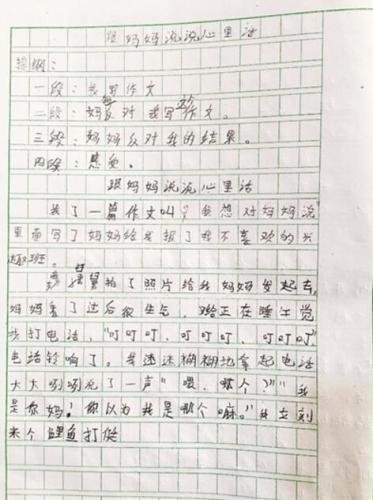 跟妈妈说说心里话
提纲：
一段：我写作文
二段：妈妈反对我写作文。
三段：妈妈反对我的结果。
四段：感受。
跟妈妈说说心里话
我了一篇作文叫，我想对妈妈说
里面写了妈妈给我报了我不喜欢的兴
趣班。
拍了照片给我妈妈发起去，
妈妈看了过后很生气，给正在睡午觉
打电话，“叮叮叮，叮叮叮，叮叮叮”
电话铃响了。我迷迷糊糊地拿起电话
大大咧咧说了一声“喂，哪个？”“我
是你妈！你以为我是哪个嘛。”我立刻
来个鲤鱼打挺